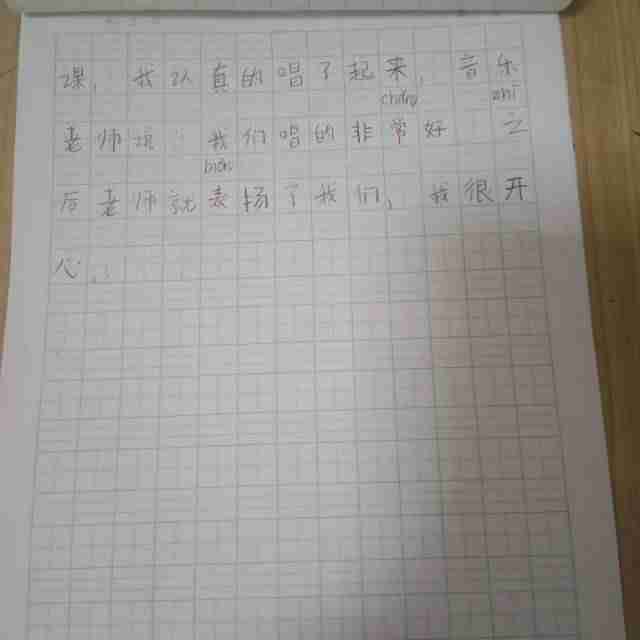 课，我认真的唱了起来，音乐
cháng zhī
老师说：我们唱的非常好 之
biǎo
后老师就表扬了我们，我很开
心。